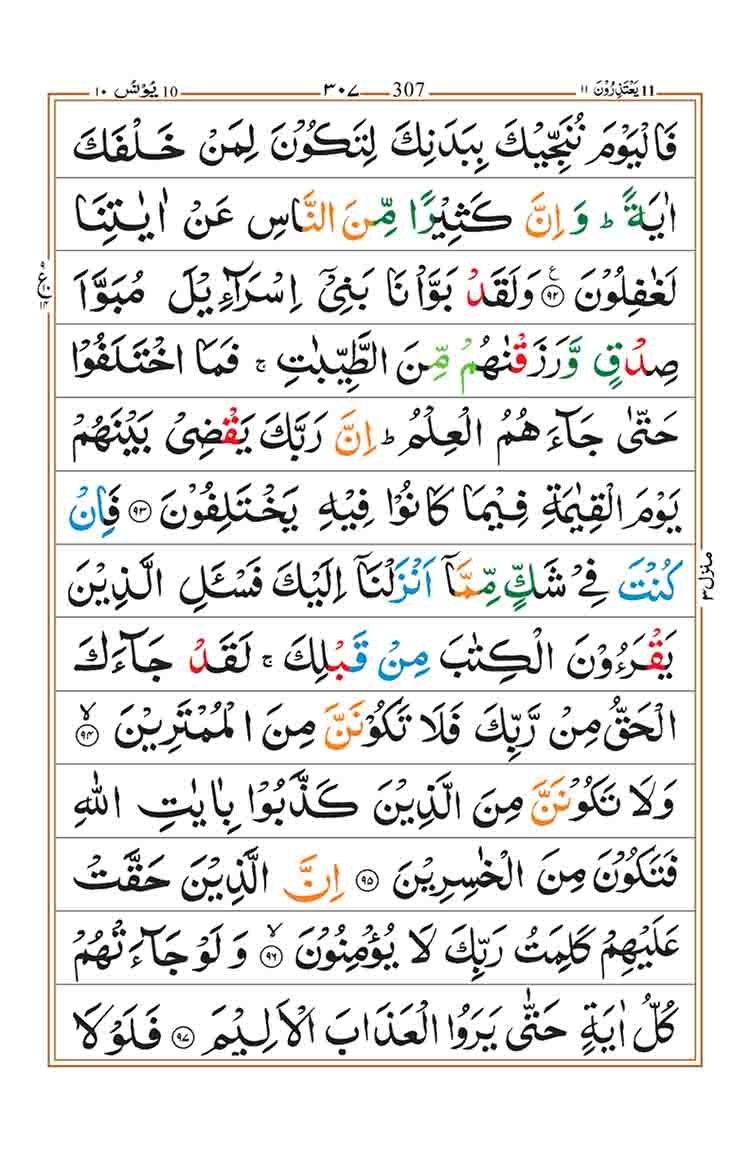 يَعْتَذِرُوْنَ ١١ 11 307 ٣٠٧ 10 يُوْنُس ١٠
فَالْيَوْمَ نُنَجِّيْكَ بِبَدَنِكَ لِتَكُوْنَ لِمَنْ خَلْفَكَ
اٰيَةً ؕ وَ اِنَّ كَثِيْرًا مِّنَ النَّاسِ عَنْ اٰيٰتِنَا
لَغٰفِلُوْنَ ﴿٩٢﴾ ع وَلَقَدْ بَوَّاْنَا بَنِيْۤ اِسْرَآءِيْلَ مُبَوَّاَ
صِدْقٍ وَّرَزَقْنٰهُمْ مِّنَ الطَّيِّبٰتِ ۚ فَمَا اخْتَلَفُوْا
حَتّٰى جَآءَهُمُ الْعِلْمُ ؕ اِنَّ رَبَّكَ يَقْضِيْ بَيْنَهُمْ
يَوْمَ الْقِيٰمَةِ فِيْمَا كَانُوْا فِيْهِ يَخْتَلِفُوْنَ ﴿٩٣﴾ فَاِنْ
كُنْتَ فِيْ شَكٍّ مِّمَّاۤ اَنْزَلْنَاۤ اِلَيْكَ فَسْـَٔلِ الَّذِيْنَ
يَقْرَءُوْنَ الْكِتٰبَ مِنْ قَبْلِكَ ۚ لَقَدْ جَآءَكَ
الْحَقُّ مِنْ رَّبِّكَ فَلَا تَكُوْنَنَّ مِنَ الْمُمْتَرِيْنَ ﴿٩٤﴾ ۙ
وَلَا تَكُوْنَنَّ مِنَ الَّذِيْنَ كَذَّبُوْا بِاٰيٰتِ اللّٰهِ
فَتَكُوْنَ مِنَ الْخٰسِرِيْنَ ﴿٩٥﴾ اِنَّ الَّذِيْنَ حَقَّتْ
عَلَيْهِمْ كَلِمَتُ رَبِّكَ لَا يُؤْمِنُوْنَ ﴿٩٦﴾ ۙ وَلَوْ جَآءَتْهُمْ
كُلُّ اٰيَةٍ حَتّٰى يَرَوُا الْعَذَابَ الْاَلِيْمَ ﴿٩٧﴾ فَلَوْلَا
منزل ٣